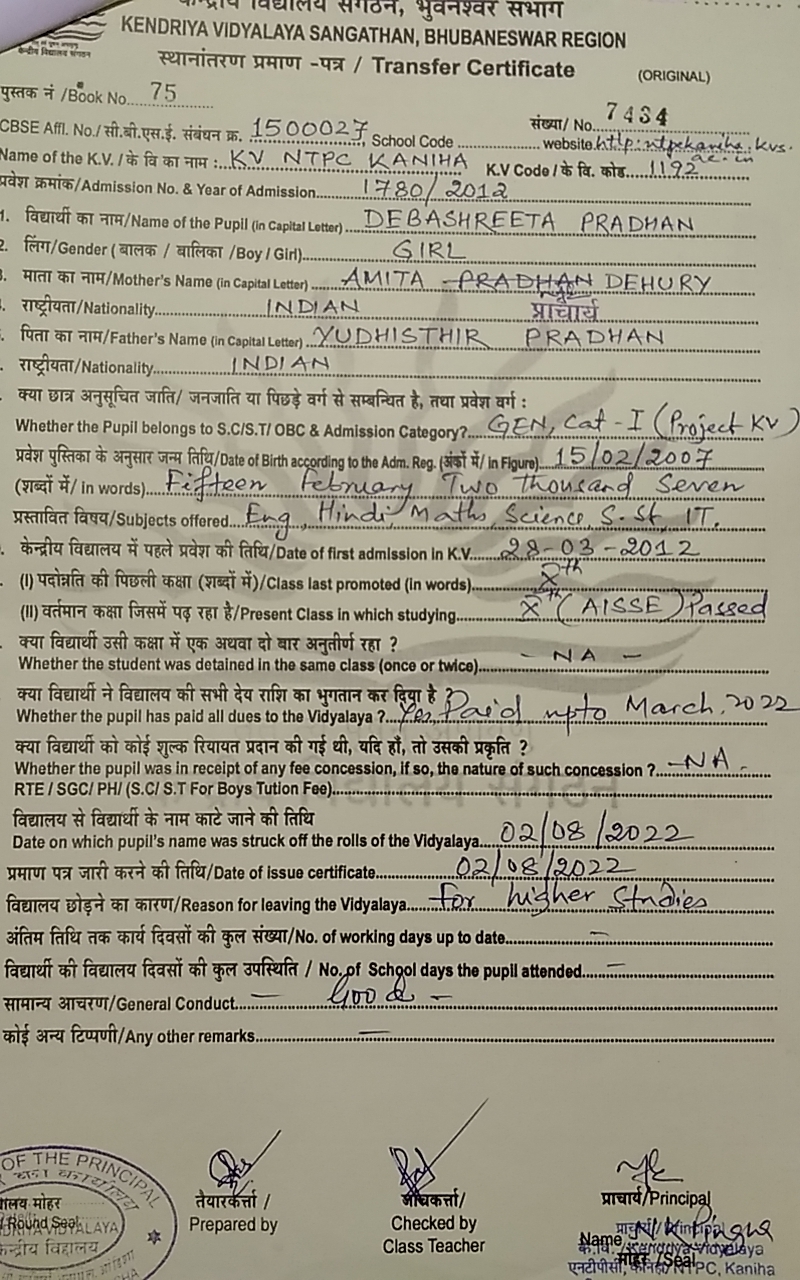 केन्द्रीय विद्यालय संगठन, भुवनेश्वर संभाग
KENDRIYA VIDYALAYA SANGATHAN, BHUBANESWAR REGION
केन्द्रीय विद्यालय संगठन
स्थानांतरण प्रमाण -पत्र / Transfer Certificate (ORIGINAL)
पुस्तक नं /Book No. 75 संख्या/ No. 7434
CBSE Affl. No./सी.बी.एस.ई. संबंधन क्र. 1500027, School Code website. http:ntpckaniha.kvs.ac.in
Name of the K.V. / के वि का नाम : KV NTPC KANIHA K.V Code / के वि. कोड. 1192
प्रवेश क्रमांक/Admission No. & Year of Admission 1780/2012
1. विद्यार्थी का नाम/Name of the Pupil (in Capital Letter) DEBASHREETA PRADHAN
2. लिंग/Gender ( बालक / बालिका /Boy / Girl) GIRL
माता का नाम/Mother's Name (in Capital Letter) AMITA PRADHAN DEHURY
राष्ट्रीयता/Nationality INDIAN प्राचार्य
पिता का नाम/Father's Name (in Capital Letter) YUDHISTHIR PRADHAN
राष्ट्रीयता/Nationality INDIAN
क्या छात्र अनुसूचित जाति/ जनजाति या पिछड़े वर्ग से सम्बन्धित है, तथा प्रवेश वर्ग :
Whether the Pupil belongs to S.C/S.T/ OBC & Admission Category? GEN, Cat - I (Project KV)
प्रवेश पुस्तिका के अनुसार जन्म तिथि/Date of Birth according to the Adm. Reg. (अंकों में/ in Figure) 15/02/2007
(शब्दों में/ in words) Fifteen February Two Thousand Seven
प्रस्तावित विषय/Subjects offered Eng, Hindi, Maths, Science, S.St, IT.
केन्द्रीय विद्यालय में पहले प्रवेश की तिथि/Date of first admission in K.V. 28-03-2012
(I) पदोन्नति की पिछली कक्षा (शब्दों में)/Class last promoted (in words) Xth
(II) वर्तमान कक्षा जिसमें पढ़ रहा है/Present Class in which studying Xth (AISSE) Passed
क्या विद्यार्थी उसी कक्षा में एक अथवा दो बार अनुतीर्ण रहा ?
Whether the student was detained in the same class (once or twice) - NA -
क्या विद्यार्थी ने विद्यालय की सभी देय राशि का भुगतान कर दिया है ?
Whether the pupil has paid all dues to the Vidyalaya ? Yes, Paid upto March. 2022
क्या विद्यार्थी को कोई शुल्क रियायत प्रदान की गई थी, यदि हाँ, तो उसकी प्रकृति ?
Whether the pupil was in receipt of any fee concession, if so, the nature of such concession ? -NA-
RTE / SGC/ PH/ (S.C/ S.T For Boys Tution Fee)
विद्यालय से विद्यार्थी के नाम काटे जाने की तिथि
Date on which pupil's name was struck off the rolls of the Vidyalaya 02/08/2022
प्रमाण पत्र जारी करने की तिथि/Date of issue certificate 02/08/2022
विद्यालय छोड़ने का कारण/Reason for leaving the Vidyalaya For higher Studies
अंतिम तिथि तक कार्य दिवसों की कुल संख्या/No. of working days up to date -
विद्यार्थी की विद्यालय दिवसों की कुल उपस्थिति / No. of School days the pupil attended -
सामान्य आचरण/General Conduct - Good -
कोई अन्य टिप्पणी/Any other remarks -
OF THE PRINCIPAL
तैयारकर्त्ता / Prepared by
Checked by
Class Teacher
प्राचार्य/Principal
मोहर
Round Seal
VIDYALAYA
Name
प्राचार्य / Principal
के.वि. / Kendriya Vidyalaya
मोहर /Seal
एनटीपीसी, कनिहा/NTPC, Kaniha